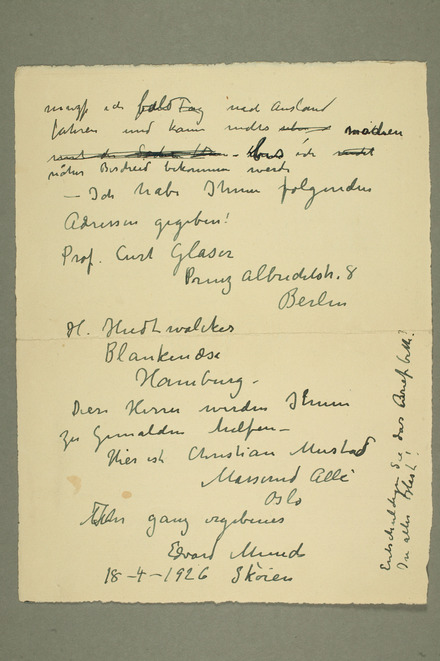 muss ich bald nach Ausland
fahren und kann nichts machen
bis ich
näher Bescheid bekommen werde
– Ich habe Ihnen folgenden
Adressen gegeben!
Prof. Curt Glaser
Prinz Albrechtstr. 8
Berlin
H. Hudtwalcker
Blankenese
Hamburg –
Diese Herren werden Ihnen
zu Gemälden helfen –
Hier ist Christian Mustad
Allé
Oslo
Ihr ganz ergebenes
Edvard Munch
18-4-1926 Skøien
Entschuldigen Sie das Brief bitte!
In aller